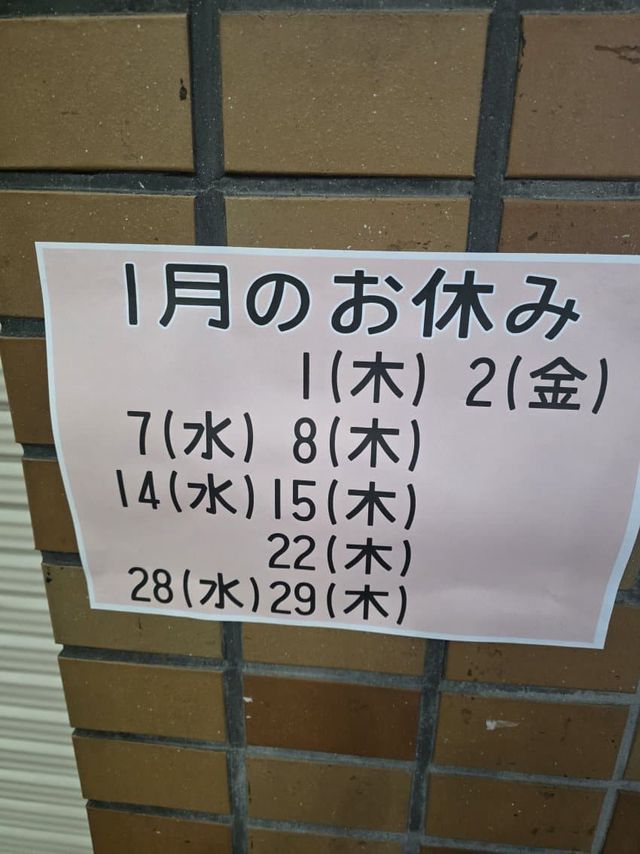 1月のお休み
1(木) 2(金)
7(水) 8(木)
14(水) 15(木)
22(木)
28(水) 29(木)